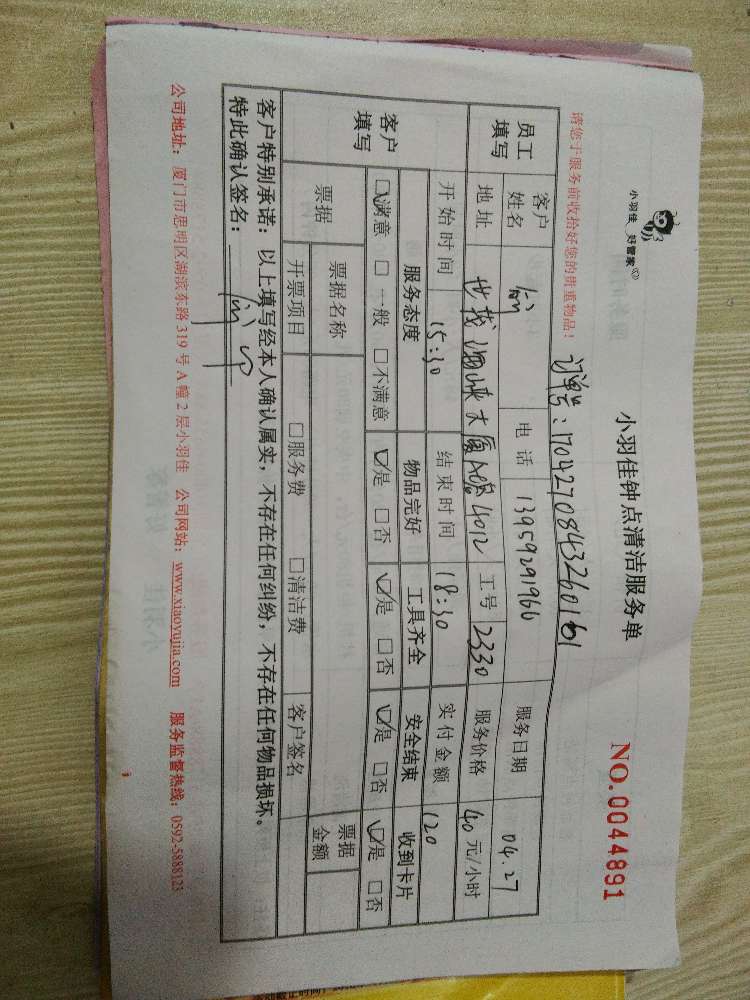 小羽佳 好管家
小羽佳钟点清洁服务单
NO.0044891
请您于服务前收拾好您的贵重物品!
订单号:
员工填写
客户姓名
电话 13959291966
服务日期 04.27
地址 大厦 4012
工号 2330
服务价格 40元/小时
开始时间 15:30
结束时间 18:30
实付金额 120
客户填写
服务态度 物品完好 工具齐全 安全结束 收到卡片
☑满意 □一般 □不满意 ☑是 □否 ☑是 □否 ☑是 □否 ☑是 □否
票据
票据名称
票据金额
开票项目 □服务费 □清洁费 客户签名
客户特别承诺:以上填写经本人确认属实,不存在任何纠纷,不存在任何物品损坏。
特此确认签名:
公司地址:厦门市思明区湖滨东路319号A幢2层小羽佳 公司网站:www.xiaoyujia.com 服务监督热线:0592-5888123